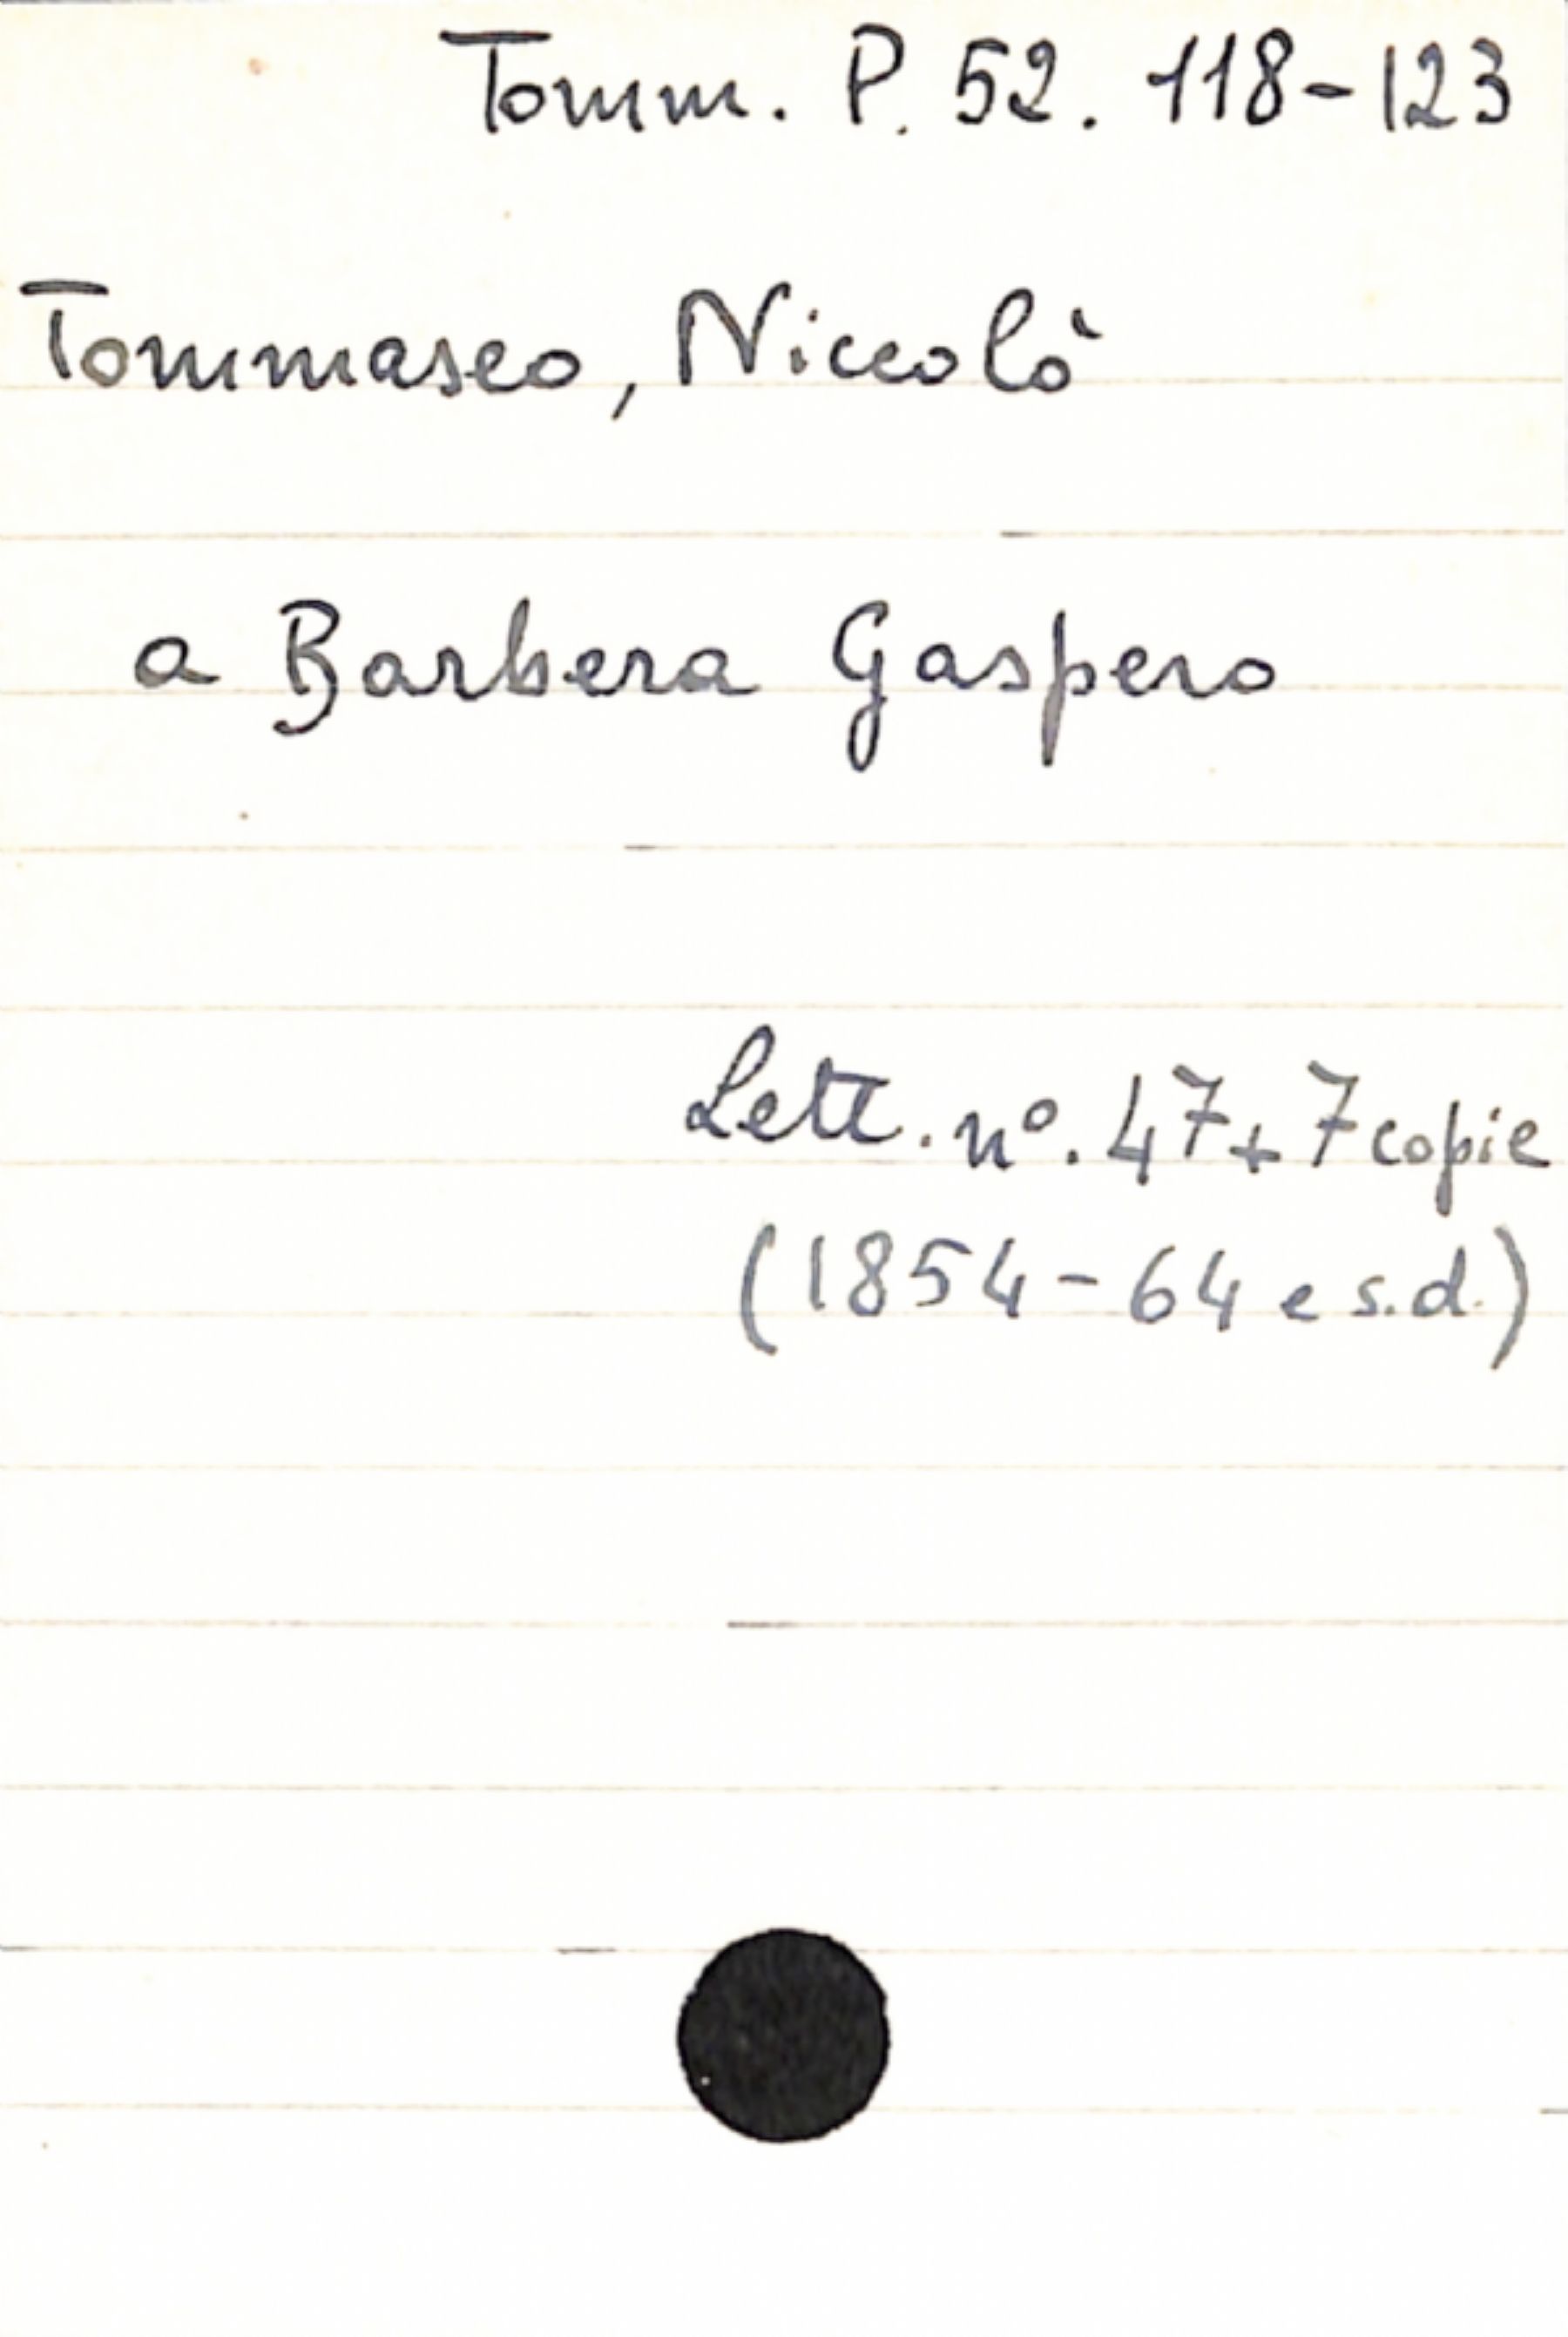 Tomm. P. 52. 118-123
Tommaseo, Niccolò
a Barbera Gaspero
Lett. nº. 47+7 copie
(1854-64 e s.d.)